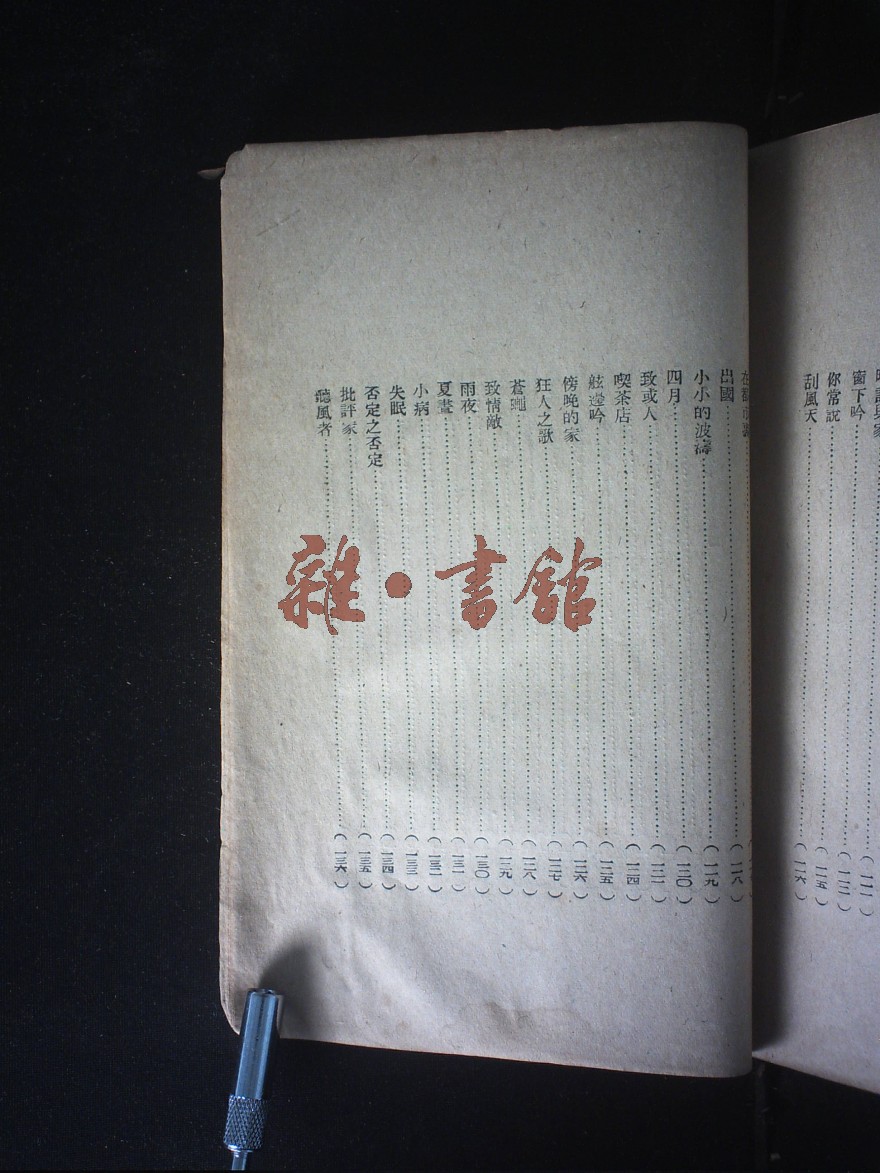 窗下吟
你常說……(一一五)
刮風天……(一一六)
出國……(一一八)
小小的波濤……(一一九)
四月……(一二〇)
致或人
喫茶店……(一二四)
舷邊吟……(一二五)
傍晚的家……(一二六)
狂人之歌……(一二七)
蒼蠅……(一二八)
致情敵……(一二九)
雨夜……(一三〇)
夏晝……(一三一)
小病……(一三二)
失眠……(一三三)
否定之否定……(一三四)
批評家……(一三五)
聽風者……(一三六)
雜·書館